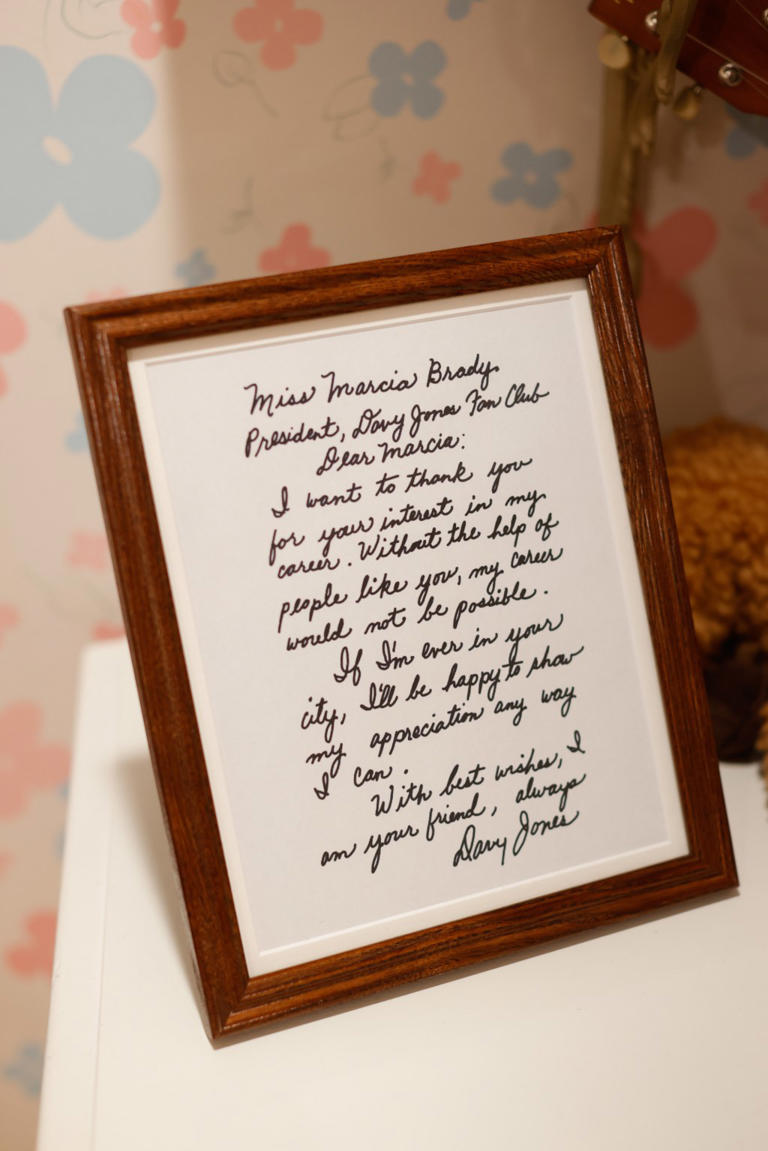 Miss Marcia Brady
President, Davy Jones Fan Club
Dear Marcia:
I want to thank you
for your interest in my
career. Without the help of
people like you, my career
would not be possible.
If I'm ever in your
city, I'll be happy to show
my appreciation any way
I can.
With best wishes, I
am your friend, always
Davy Jones